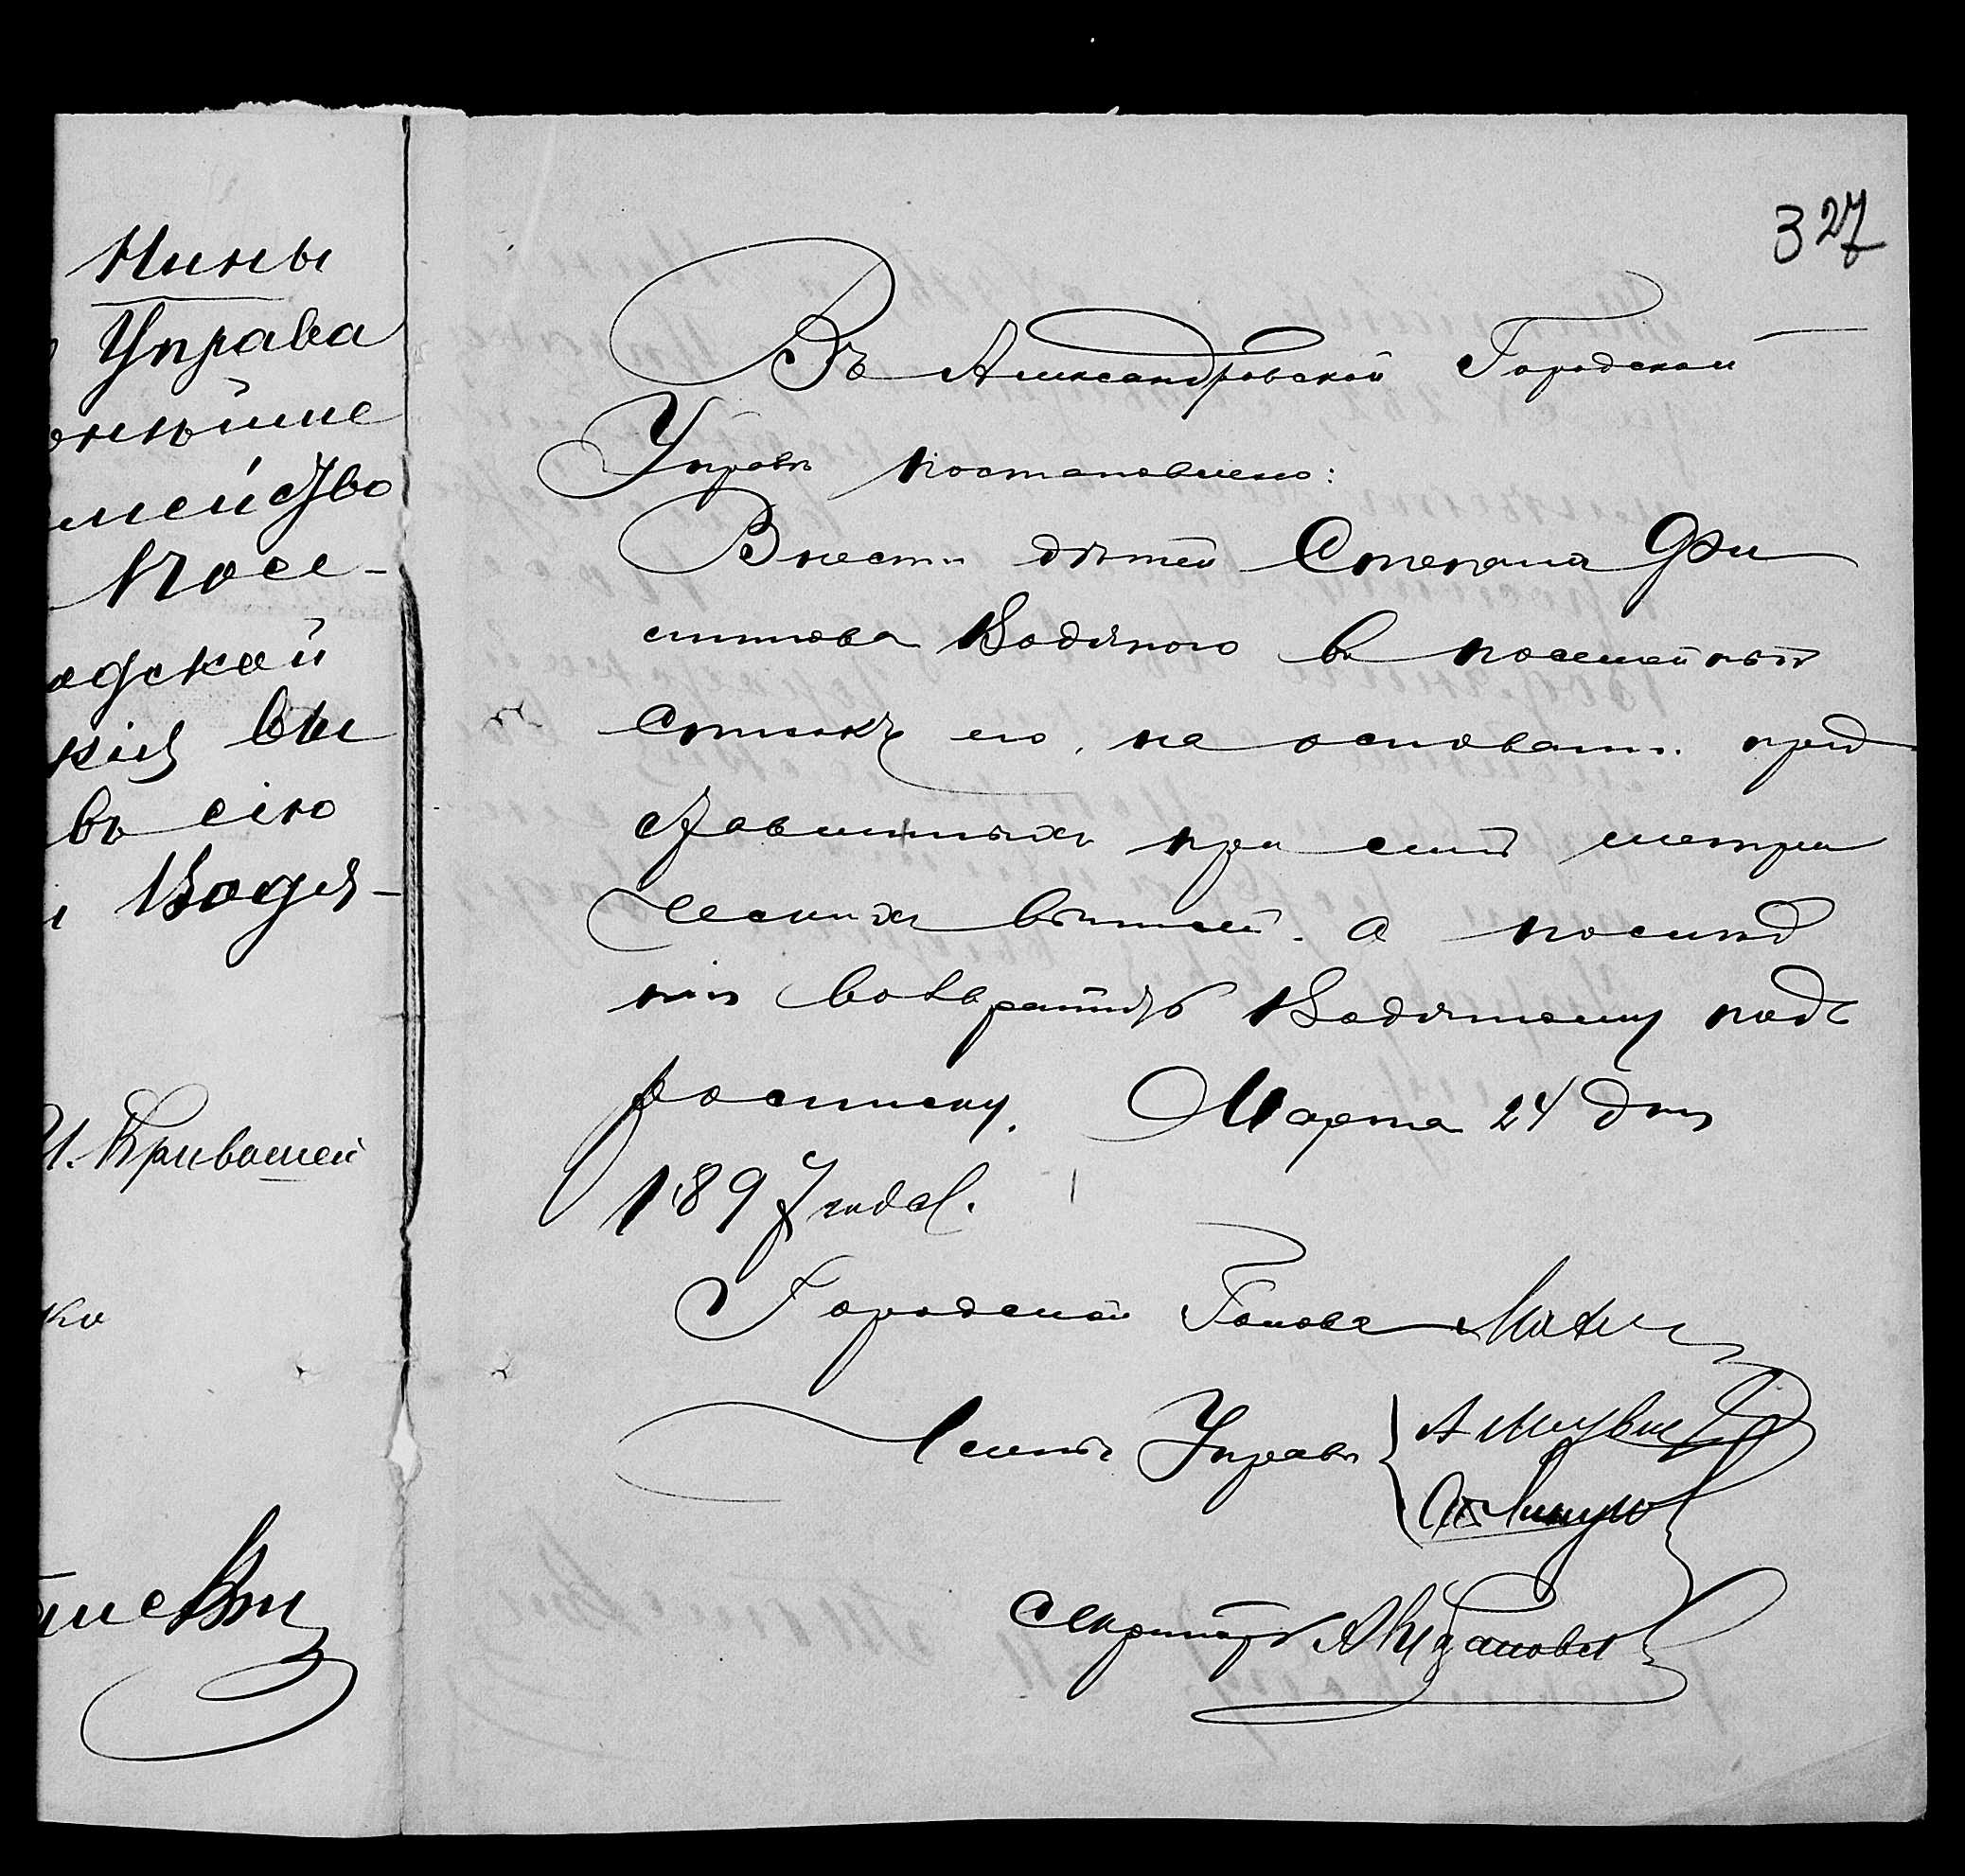 Нины
Управа
мейство
Посе-
одской
вы
въ сію
Водя-
И. Кривошей
ко
327
Въ Александровской Городской
Управѣ постановлено:
Внести дѣтей Степана Фи
липпова Водяного въ посемейный
списокъ его, на основаніи пред
ставленныхъ при семъ метри
ческихъ выписей. а послѣд
нія возвратить Водяному подъ
росписку. Марта 24 дня
1897 года.
Городской Голова
Члены Управы
Секретарь